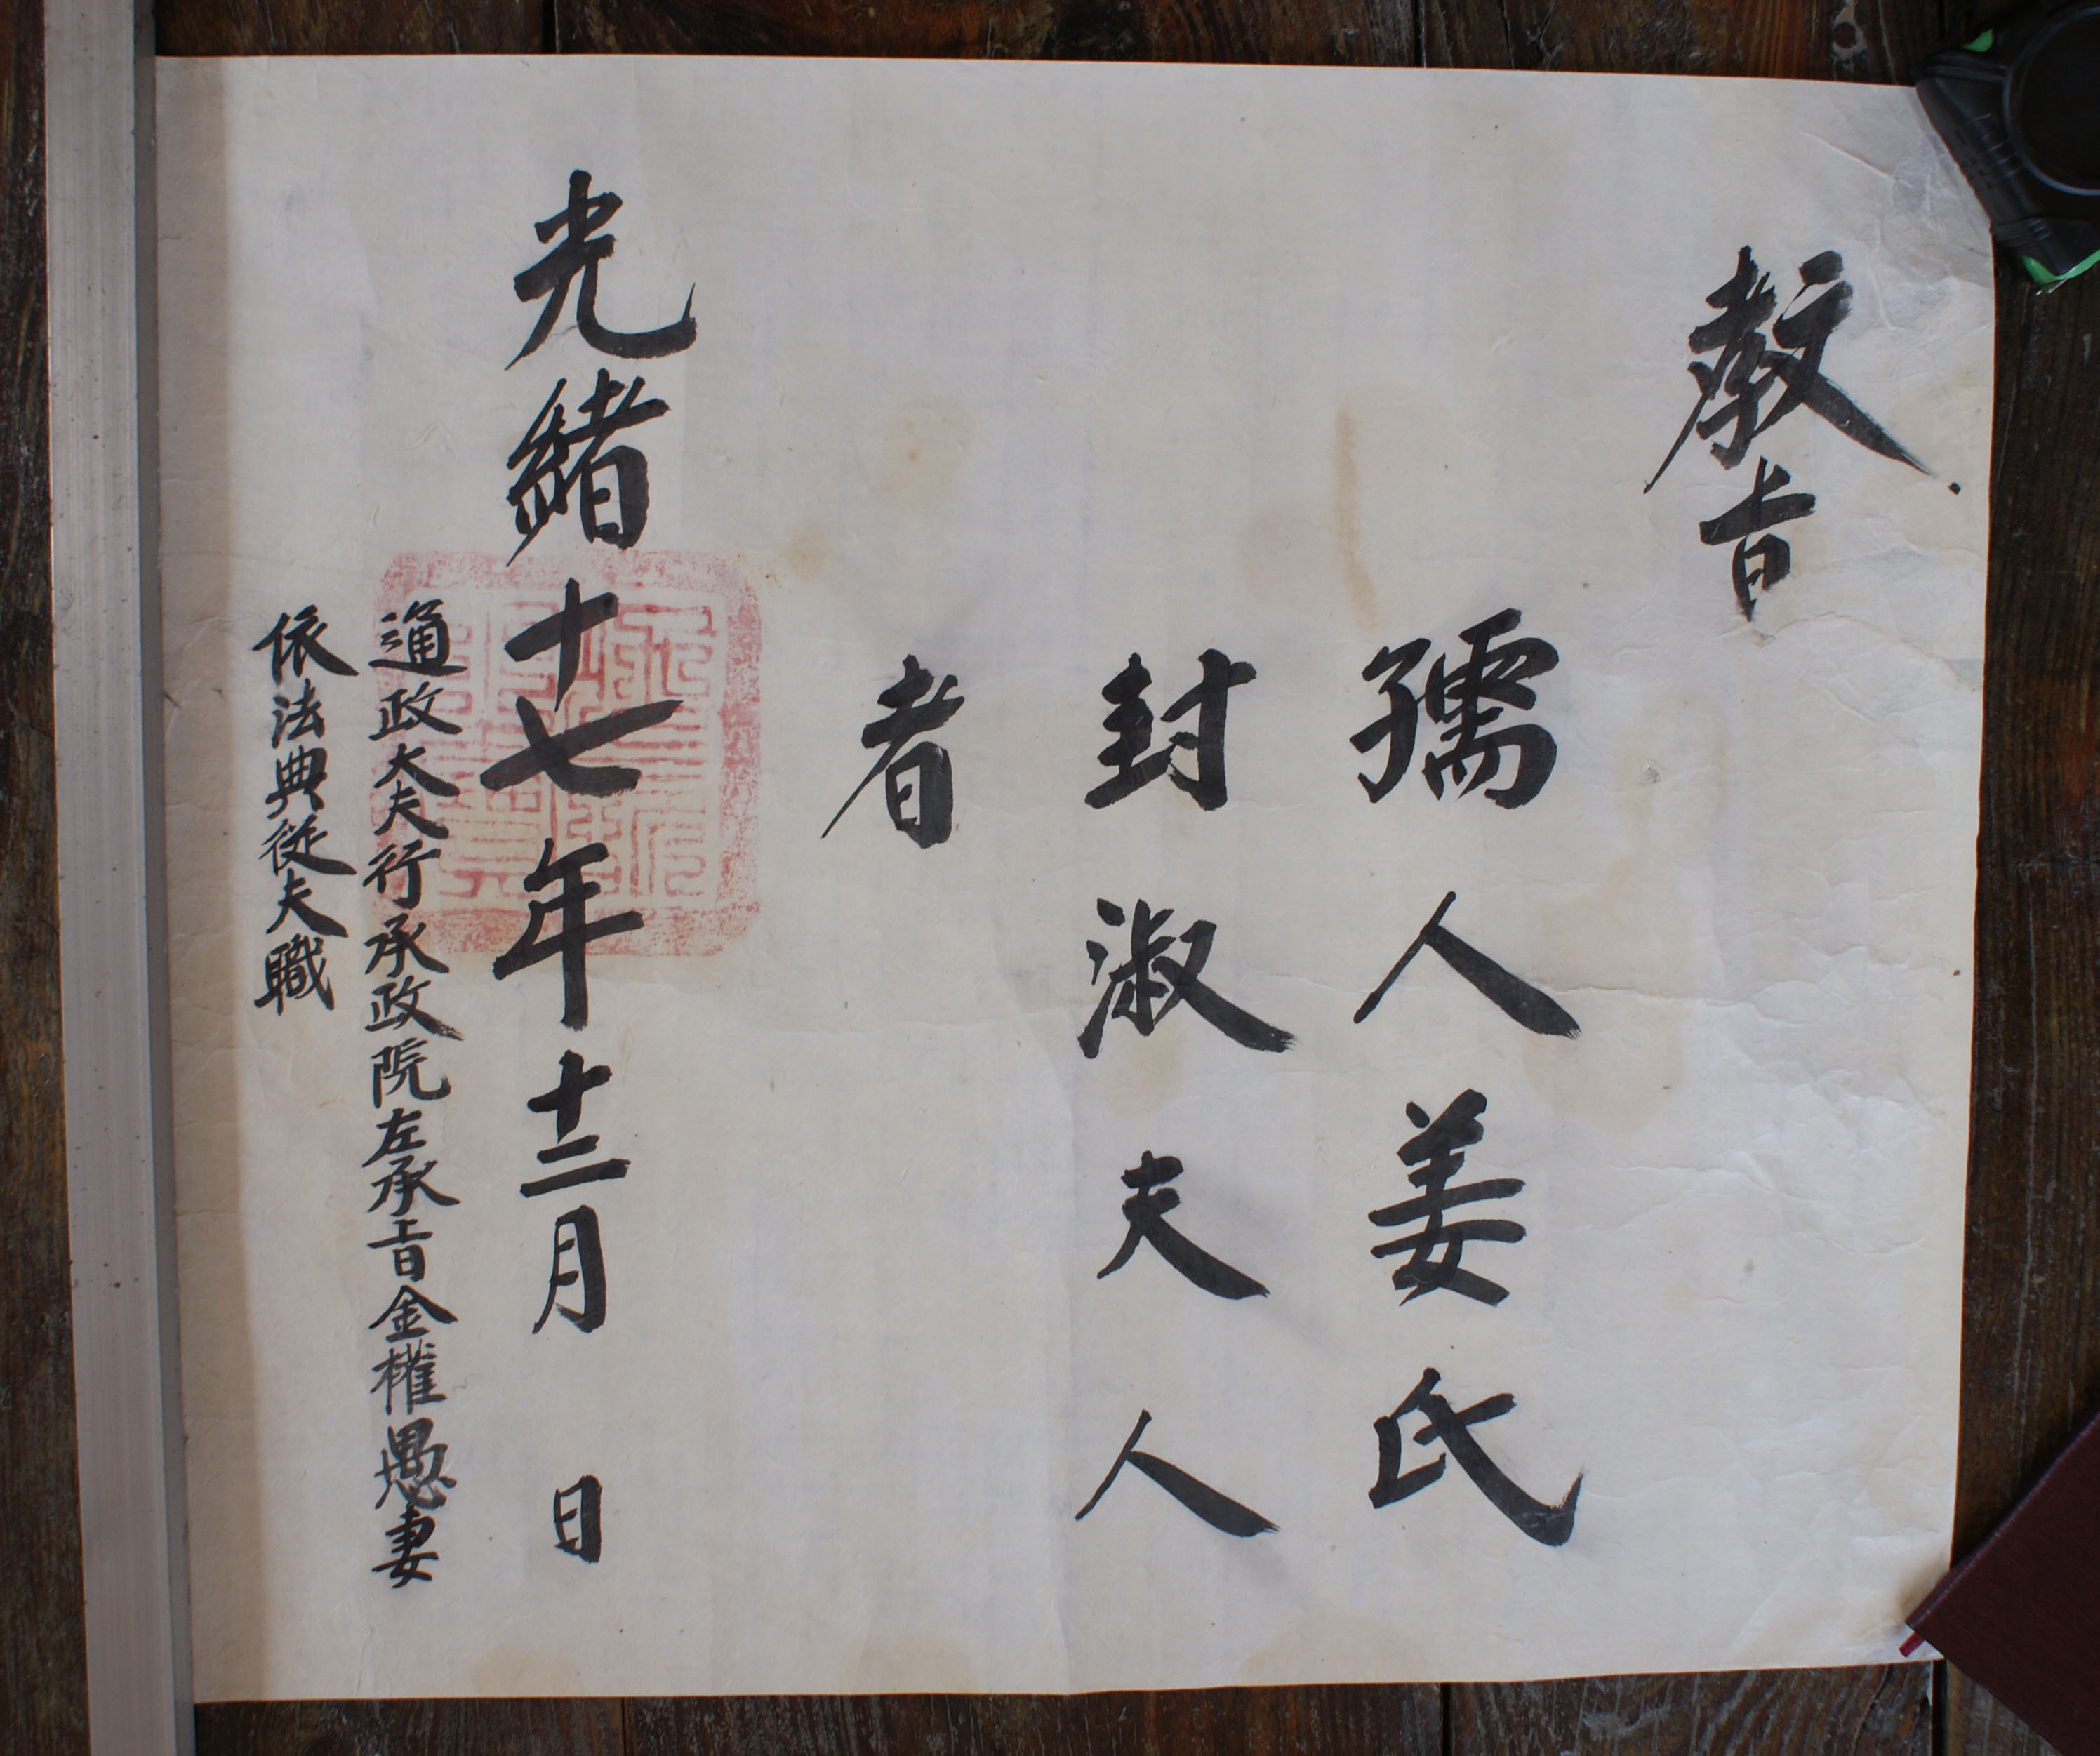 教旨
孺人姜氏
封淑夫人
者
光緖十七年十二月 日
通政大夫行承政院左承旨金權愚妻
依法典從夫職